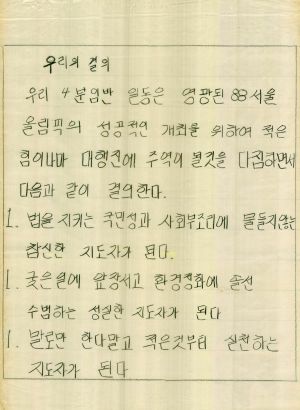 우리의 결의
우리 4분임반 일동은 영광된 88서울
올림픽의 성공적인 개최를 위하여 적은
힘이나마 대행진에 주역이 될것을 다짐하면서
다음과 같이 결의한다.
1. 법을 지키는 국민성과 사회부조리에 물들지않는
참신한 지도자가 된다.
1. 궂은일에 앞장서고 환경정화에 솔선
수범하는 성실한 지도자가 된다
1. 말로만 한다말고 적은것부터 실천하는
지도자가 된다